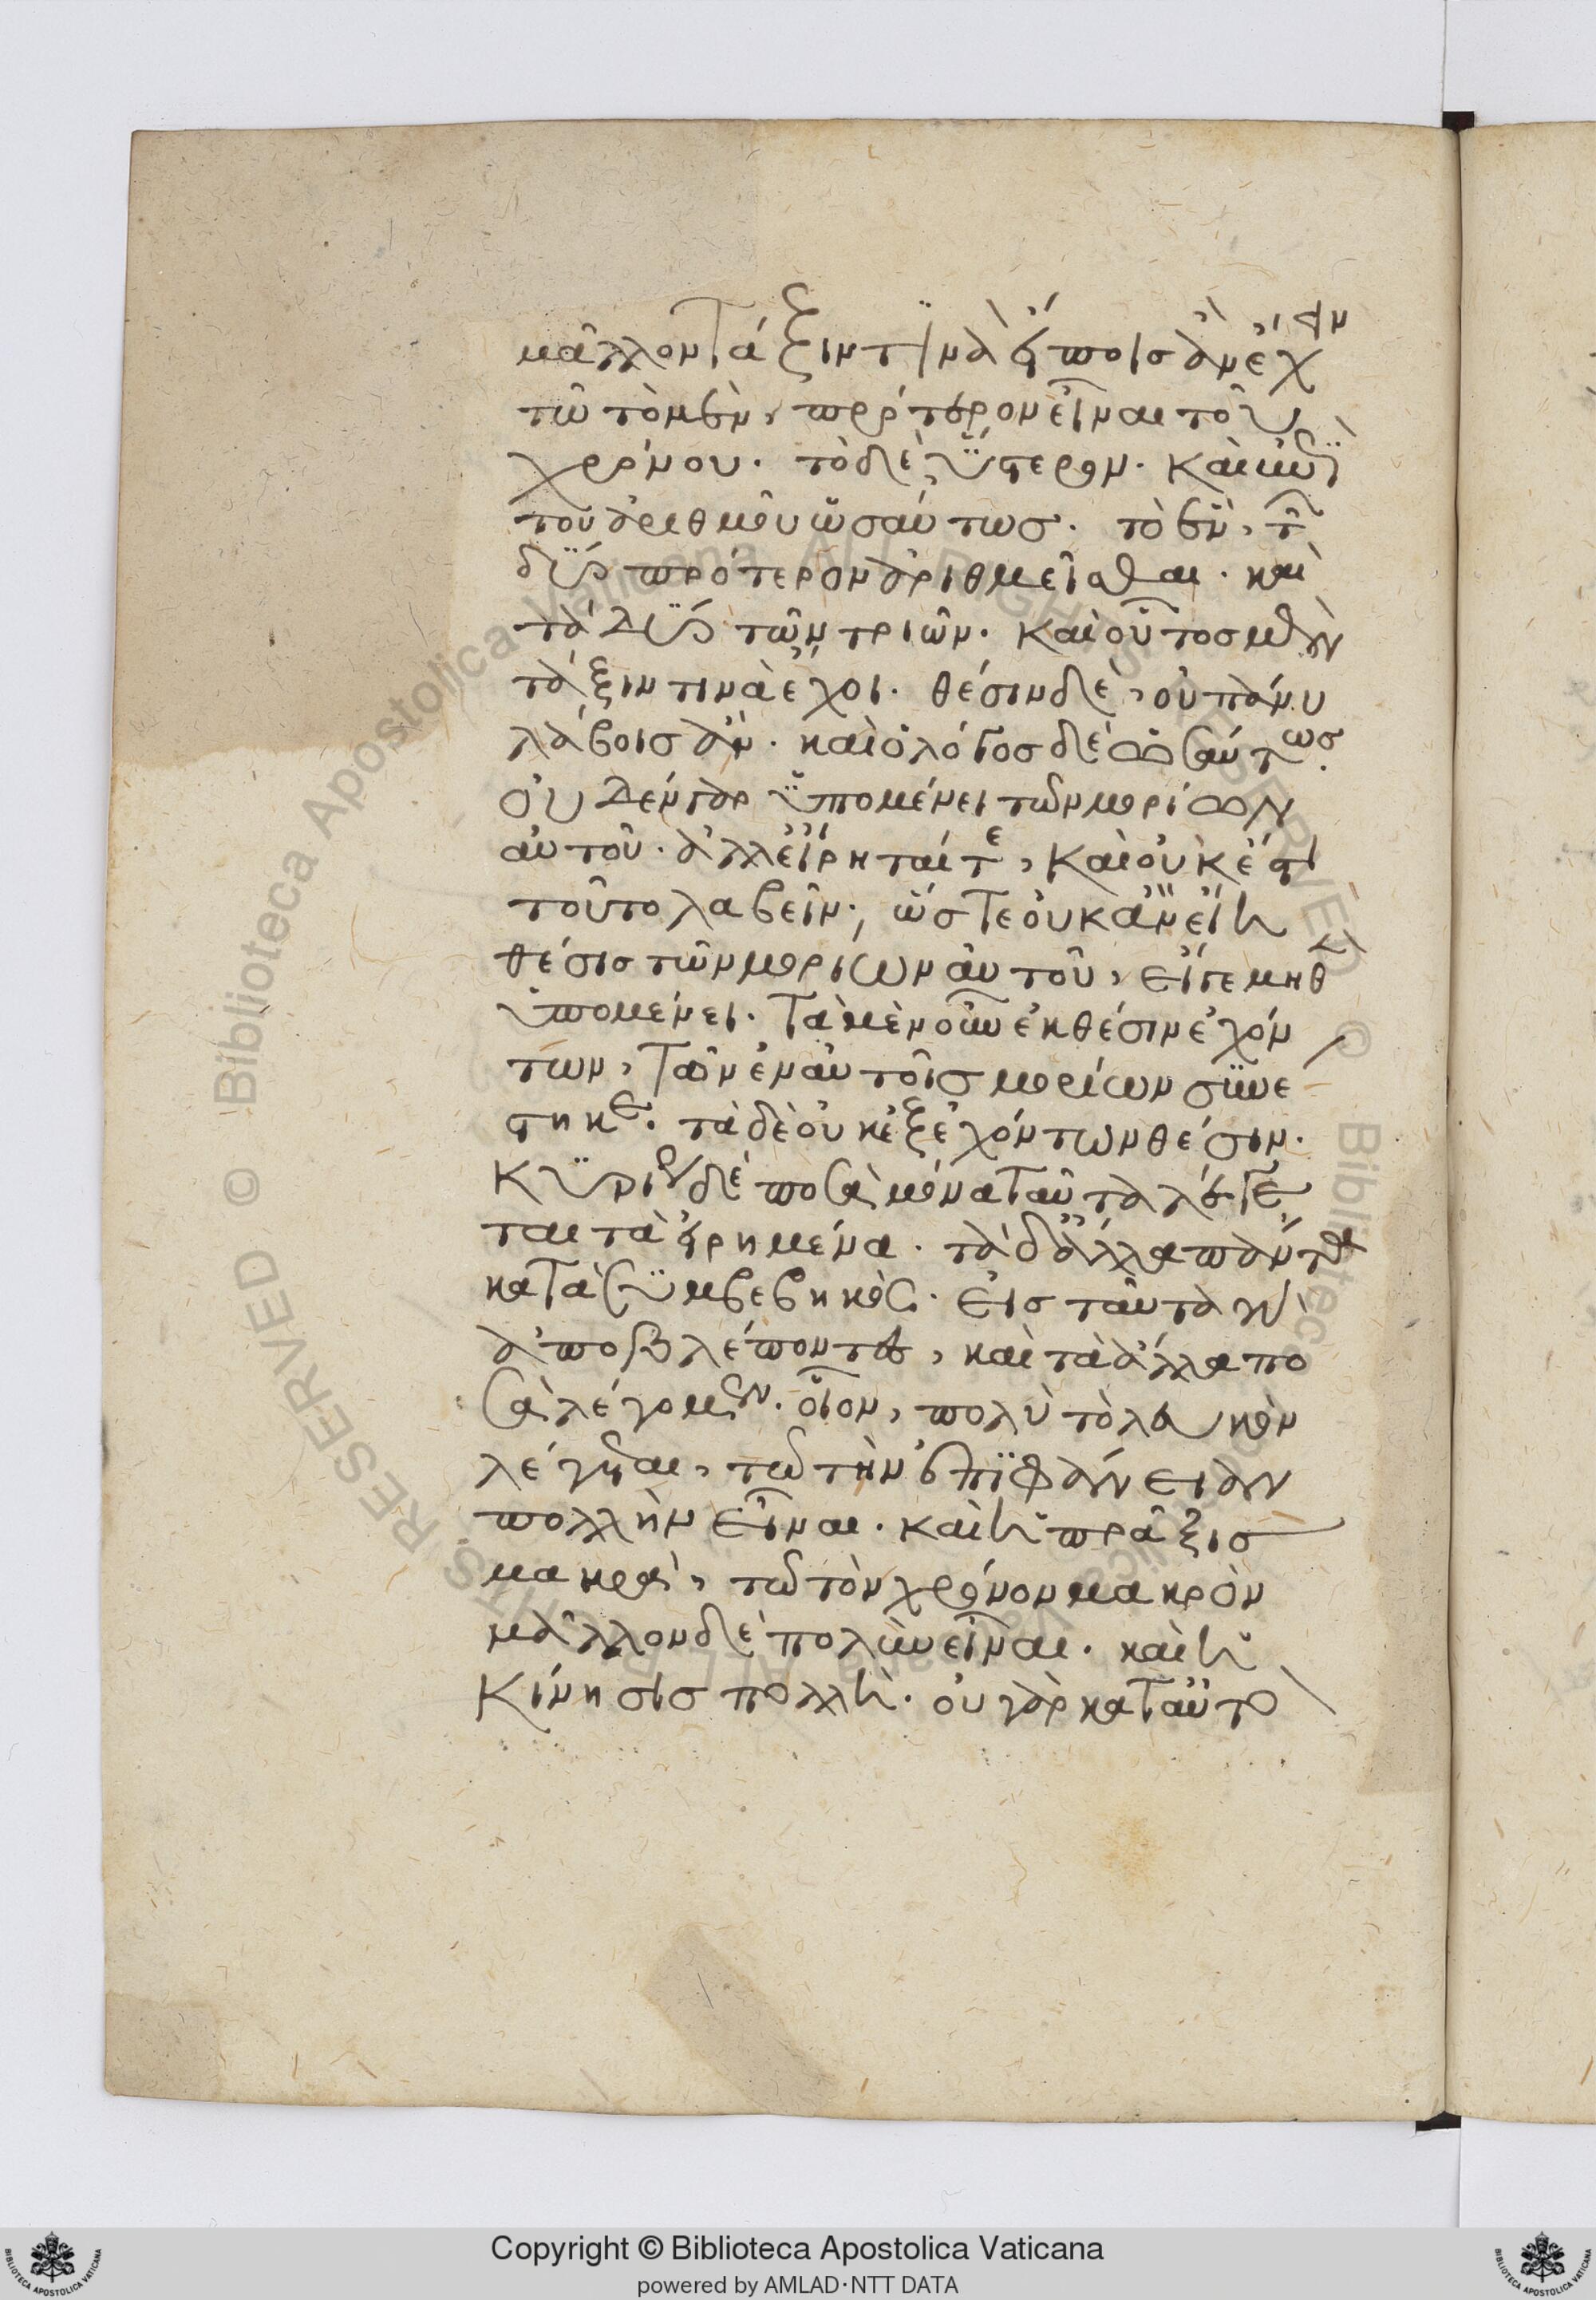 μᾶλλον τάξιν τινὰ εἴποις ἂν ἔχειν
τῶ τὸ μὲν, πρότερον εἶναι τοῦ
χρόνου. τὸ δὲ, ὕστερον. καὶ ἐπὶ
τοῦ ἀριθμοῦ ὡσαύτωσ. τὸ ἓν, τῶν
δύο πρότερον ἀριθμεῖσθαι. καὶ
τὰ δύο τῶν τριῶν. καὶ οὕτοσ μὲν
τάξιν τινὰ ἔχοι. θέσιν δὲ, οὐ πάνυ
λάβοισ ἄν. καὶ ὁ λόγοσ δὲ ὡσαύτωσ.
οὐδὲν γὰρ ὑπομένει τῶν μορίων
αὐτοῦ. ἀλλ εἴρηταί τε, καὶ οὐκ ἔστι
τοῦτο λαβεῖν, ὥστε οὐκ ἂν εἴη
θέσισ τῶν μορίων αὐτοῦ, εἴγε μηθὲν
ὑπομένει. τὰ μὲν οὖν ἐκ θέσιν ἐχόν
των, τῶν ἐν αὐτοῖσ μορίων συνέ
στηκε. τὰ δὲ οὐκ ἐξ ἐχόντων θέσιν.
Κυρίως δὲ ποσὰ μόνα ταῦτα λέγε
ται τὰ εἰρημένα. τὰ δ ἄλλα πάντα
κατὰ συμβεβηκός. εἰσ ταῦτα γὰρ
ἀποβλέποντες, καὶ τὰ ἄλλα πο
σὰ λέγομεν. οἷον, πολὺ τὸ λευκὸν
λέγεται, τῶ τὴν ἐπιφάνειαν
πολλὴν εἶναι. καὶ ἡ πρᾶξισ
μακρὰ, τῶ τὸν χρόνον μακρὸν
μᾶλλον δὲ πολὺν εἶναι. καὶ ἡ
Κίνησισ πολλή. οὐ γὰρ καταὐτὸ
Copyright © Biblioteca Apostolica Vaticana
powered by AMLAD·NTT DATA